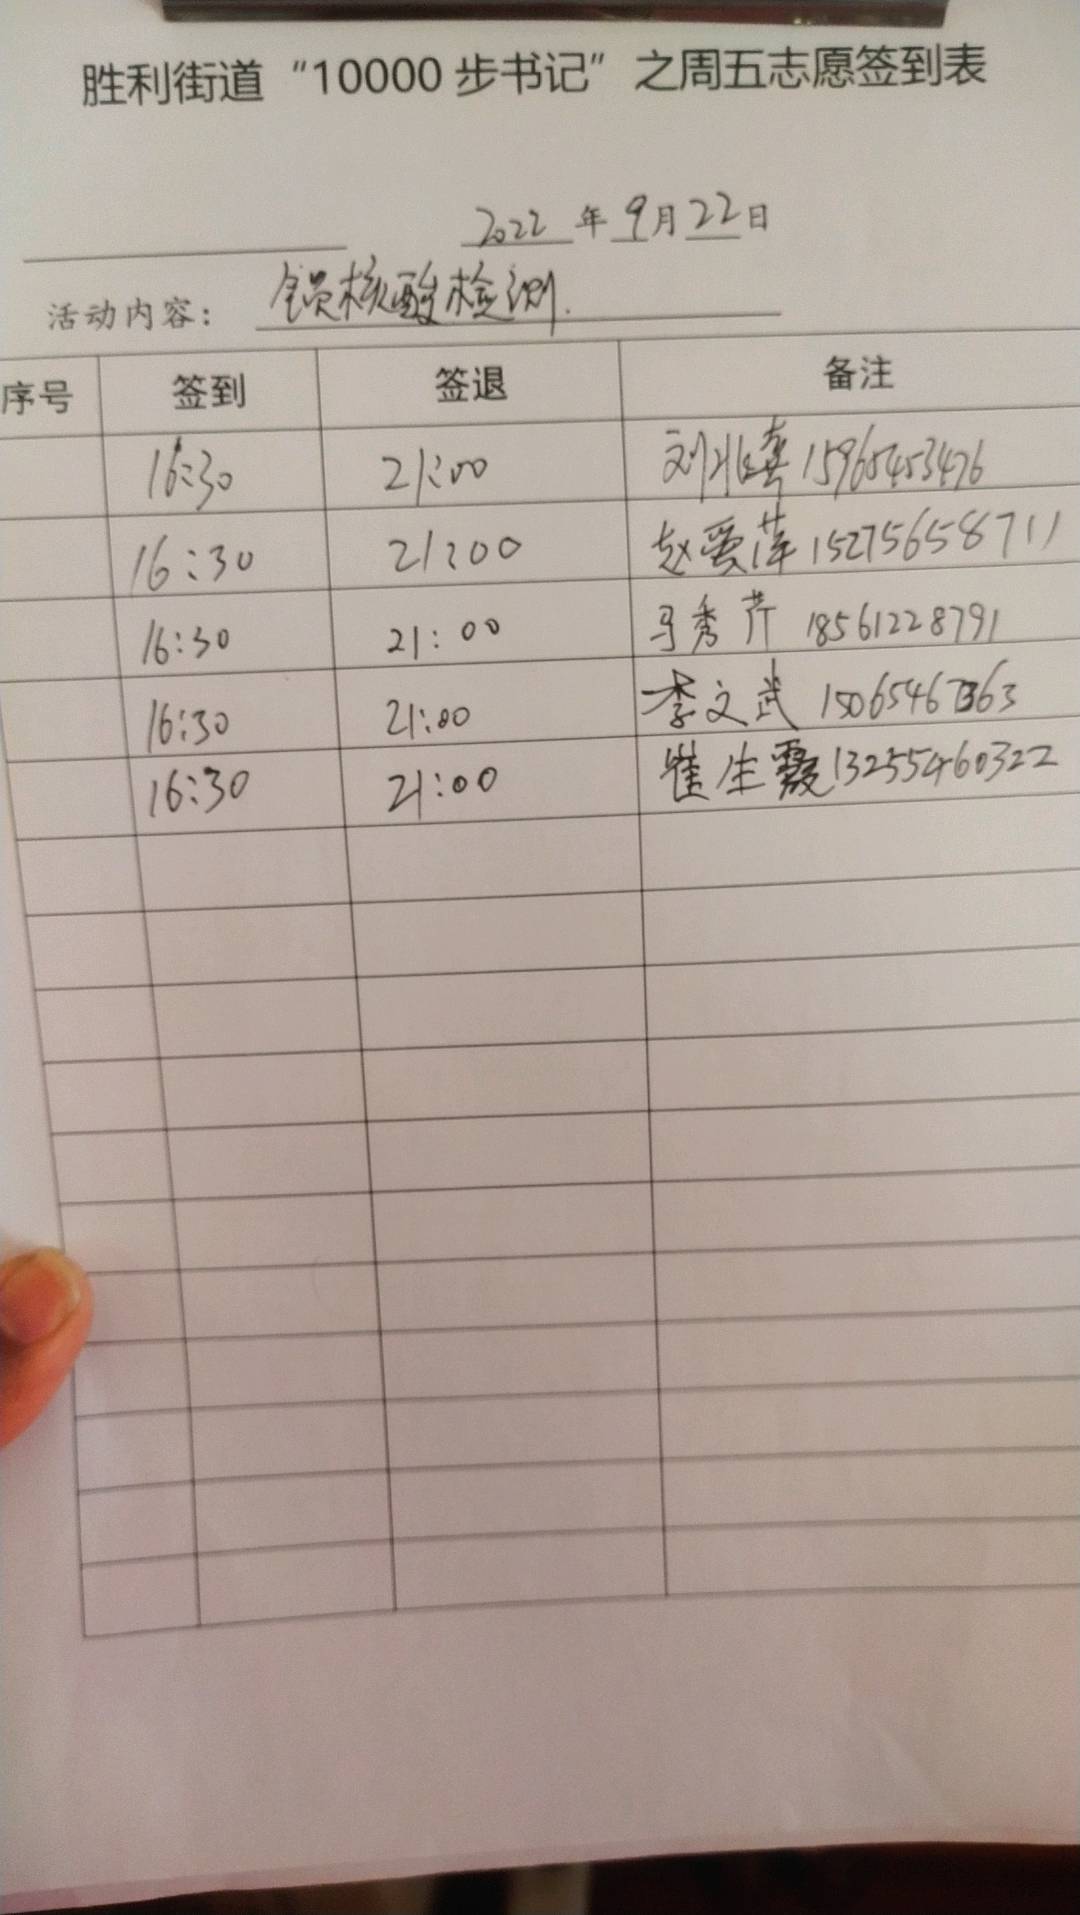 胜利街道“10000步书记”之周五志愿签到表
2022年9月22日
活动内容：全员核酸检测.
序号 签到 签退 备注
16:30 21:00 刘 15965453476
16:30 21:00 赵爱萍 15275658711
16:30 21:00 马秀芹 18561228791
16:30 21:00 李文武 15065467363
16:30 21:00 崔生霞 13255460322